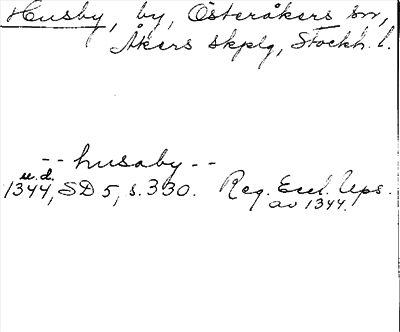 Husby, by, Österåkers sn,
Åkers skplg, Stockh. l.
-- husaby --
u.d.
1344, SD 5, s. 330. Reg. Eccl. Ups.
av 1344.